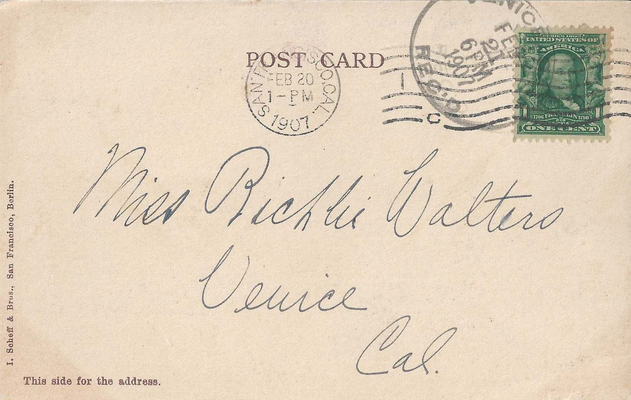 POST CARD
SAN FRANCISCO, CAL.
FEB 20
1-PM
1907
VENICE
FEB
21
6 PM
1907
REC'D.
1
C
UNITED STATES OF
AMERICA
FRANKLIN
ONE CENT
Miss Richlie Walters
Venice
Cal.
I. Scheff & Bros., San Francisco, Berlin.
This side for the address.